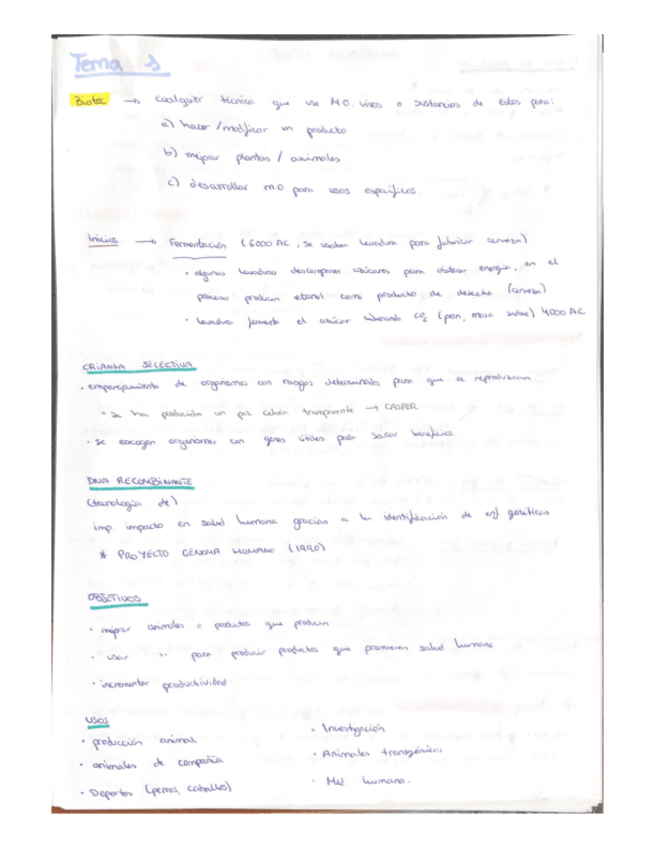 Tema 5
Biotec → cualquier técnica que use M.O. vivos o sustancias de estos para:
a) hacer / modificar un producto
b) mejorar plantas / animales
c) desarrollar m.o para usos específicos.
Inicios → Fermentación (6000 AC, se usaban levadura para fabricar cerveza)
· algunas levaduras descomponen azúcares para obtener energía, en el
proceso producen etanol como producto de desecho (cerveza)
· levadura fermenta el azúcar liberando CO2 (pan, masa ) 4000 AC
CRIANZA SELECTIVA
· emparejamiento de organismos con rasgos determinados para que se reproduzcan
se ha producido un pez cebra transparente → CASPER
· se escogen organismos con genes útiles para sacar beneficios.
DNA RECOMBINANTE
(tecnología de)
imp. impacto en salud humana gracias a la identificación de enf genéticas
* PROYECTO GENOMA HUMANO (1990)
OBJETIVOS
· mejorar animales o productos que producen
· usar " para producir productos que promueven salud humana
· incrementar productividad
USOS
· producción animal
· animales de compañía
· Deportes (perros, caballos)
· Investigación
· Animales transgénicos
· Med. humana.